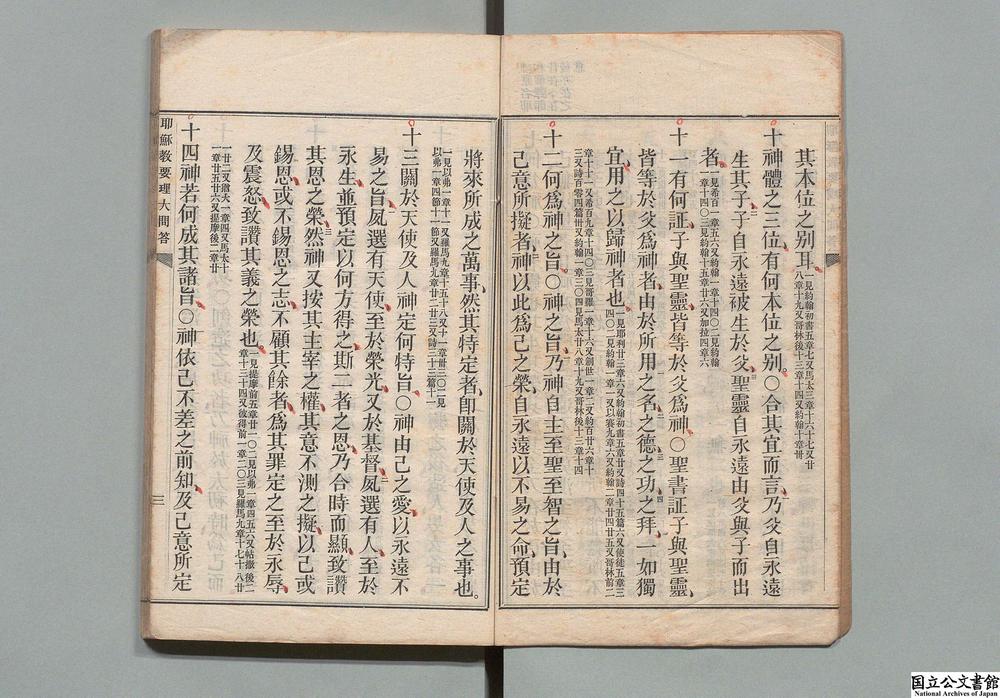 其本位之别耳、一見約翰初書五章七又馬太三章十六十七又廿八章十九又哥林後十三章十四又約翰十章卅
十神體之三位、有何本位之别。○合其宜而言、乃父自永遠
生其子、子自永遠被生於父、聖靈自永遠由父與子而出
者、一見希百一章五六又約翰一章十四○二見約翰一章十四○三見約翰十五章廿六又加拉四章六
十一有何証、子與聖靈、皆等於父爲神、○聖書証子與聖靈、
皆等於父爲神者、由於所用之名、之德、之功、之拜、一如獨
宜用之以歸神者也、一見耶利廿三章六又約翰初書五章廿又詩四十五篇六又使徒五章三四○二見約翰一章一又以賽九章六又約翰二章廿四廿五又哥林前二
章十十一又希百九章十四○三見哥羅一章十六又創世一章二又約百廿六章十三又詩百零四篇卅又約翰一章三○四見馬太廿八章十九又哥林後十三章十四
十二何爲神之旨、○神之旨、乃神自主至聖至智之旨、由於
己意所擬者、神以此爲己之榮、自永遠以不易之命、預定
將來所成之萬事、然其特定者、卽關於天使及人之事也。
一見以弗一章十一又羅馬九章十五十八又十一章卅三○二見以弗一章四節十一節又羅馬九章廿二廿三又詩三十三篇十一
十三關於天使及人、神定何特旨、○神由己之愛、以永遠不
易之旨、夙選有天使至於榮光、又於基督夙選有人、至於
永生、並預定以何方得之、斯二者之恩、乃合時而顯、致讚
其恩之榮、然神又按其主宰之權、其意不測之擬、以己或
錫恩、或不錫恩之志、不顧其餘者、爲其罪定之至於永辱、
及震怒、致讚其義之榮也、一見提摩前五章廿一○二見以弗一章四五六又帖撒後二章十三十四又彼得前一章二○三見羅馬九章十七十八廿
一廿二又猶大一章四又馬太十一章廿五廿六又提摩後二章廿
十四神若何成其諸旨、○神依己不差之前知、及己意所定
耶穌教要理大問答
三
国立公文書館
National Archives of Japan